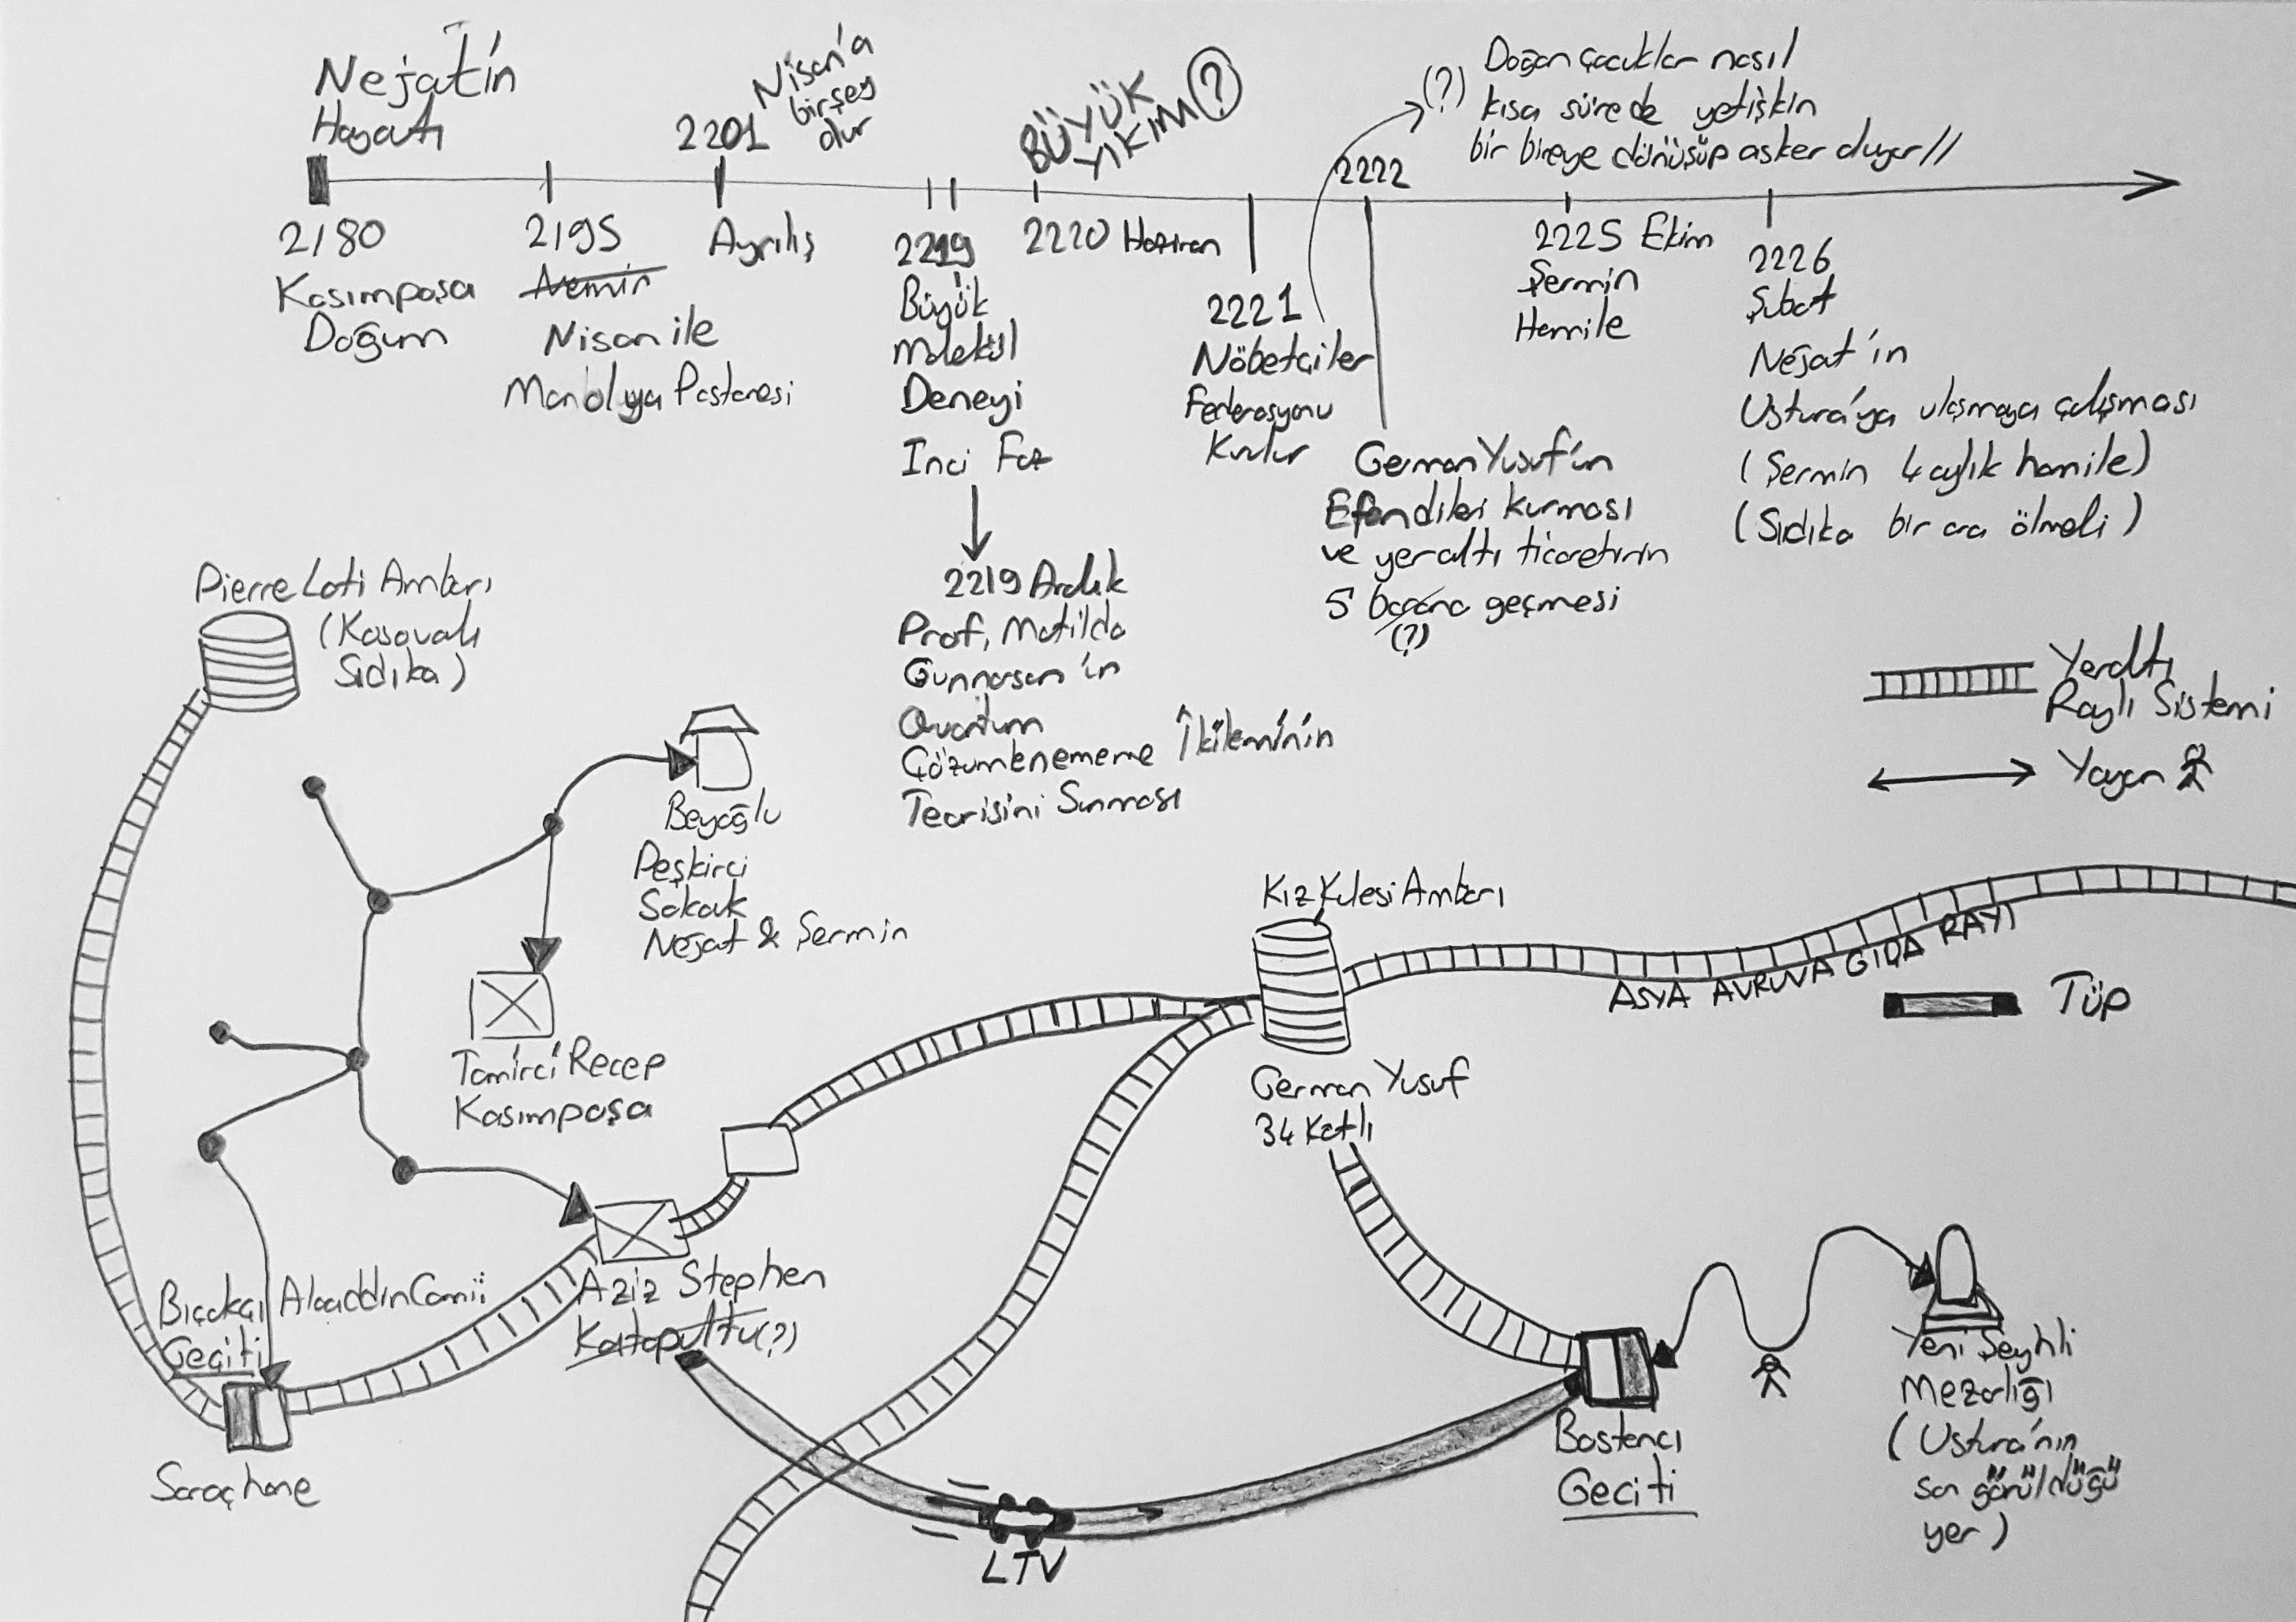 Nejat'ın
Hayatı
2180
Kasımpaşa
Doğum
2195
Nermin
Nisan ile
Manolya Pastanesi
2201
Nisan'a
birşey
olur
Ayrılış
2219
Büyük
Molekül
Deneyi
Inci Faz
2219 Aralık
Prof. Matilda
Gunnarsan'ın
Quantum
Çözümlenememe İkilemi'nin
Teorisini Sunması
BÜYÜK
YIKIM ?
2220 Haziran
2221
Nöbetçiler
Federasyonu
Kurulur
2222
(?) Doğan çocuklar nasıl
kısa sürede yetişkin
bir bireye dönüşüp asker oluyor //
German Yusuf'un
Efendileri kurması
ve yeraltı ticaretinin
5 barona geçmesi
(?)
2225 Ekim
Şermin
Hamile
2226
Şubat
Nejat'ın
Ustura'ya ulaşmaya çalışması
(Şermin 4 aylık hamile)
(Sıdıka bir ara ölmeli)
Pierre Loti Ambarı
(Kosovalı
Sıdıka)
Beyoğlu
Peşkirci
Sokak
Nejat & Şermin
Tamirci Recep
Kasımpaşa
Bıçakçı Alaaddin Camii
Geçiti
Saraçhane
Aziz Stephen
Katapultu (?)
Kız Kulesi Ambarı
German Yusuf
34 Katlı
ASYA AVRUVA GIDA RAYI
Yeraltı
Raylı Sistemi
Yayan
Tüp
LTV
Bostancı
Geçiti
Yeni Şeyhli
Mezarlığı
(Ustura'nın
son görüldüğü
yer)